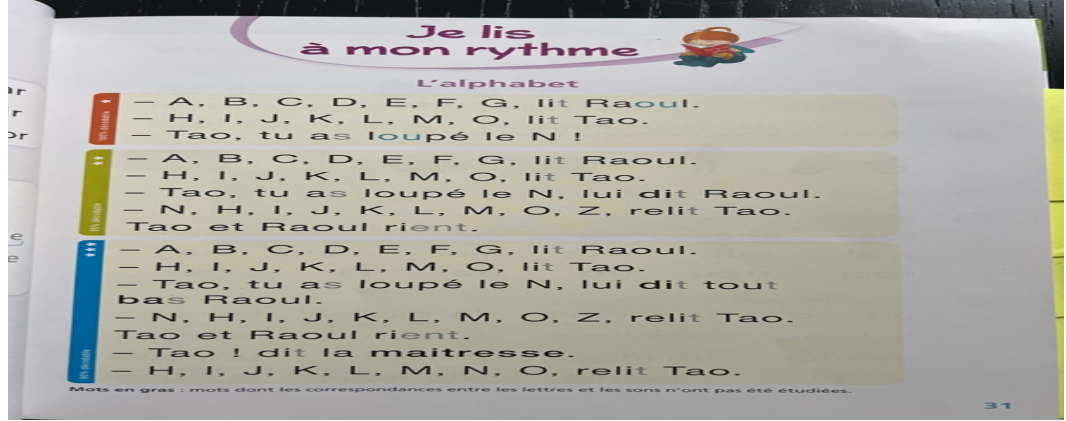 Je lis
à mon rythme
L'alphabet
– A, B, C, D, E, F, G, lit Raoul.
– H, I, J, K, L, M, O, lit Tao.
– Tao, tu as loupé le N !
– A, B, C, D, E, F, G, lit Raoul.
– H, I, J, K, L, M, O, lit Tao.
– Tao, tu as loupé le N, lui dit Raoul.
– N, H, I, J, K, L, M, O, Z, relit Tao.
Tao et Raoul rient.
– A, B, C, D, E, F, G, lit Raoul.
– H, I, J, K, L, M, O, lit Tao.
– Tao, tu as loupé le N, lui dit tout
bas Raoul.
– N, H, I, J, K, L, M, O, Z, relit Tao.
Tao et Raoul rient.
– Tao ! dit la maitresse.
– H, I, J, K, L, M, N, O, relit Tao.
Mots en gras : mots dont les correspondances entre les lettres et les sons n'ont pas été étudiées.
31